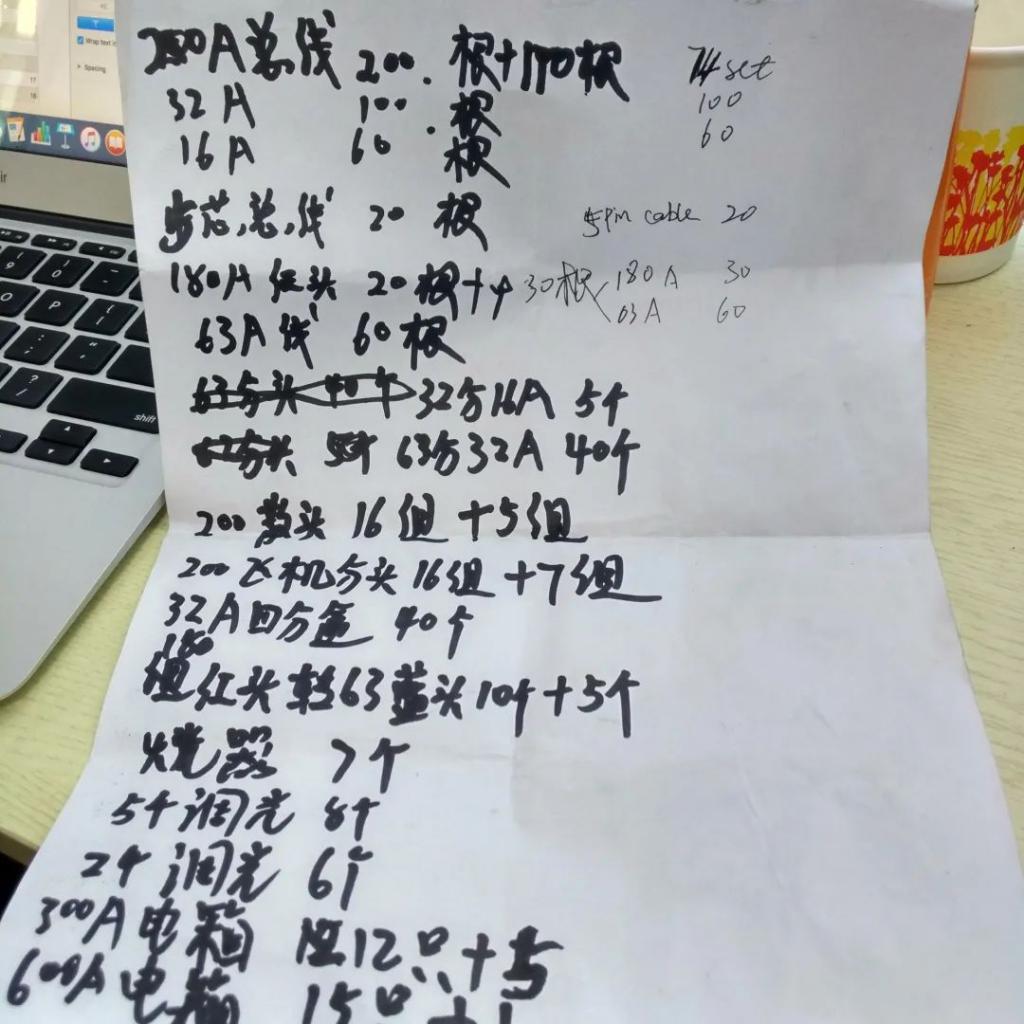 A总线 200. 根+170根 74 set
32A 100. 根 100
16A 60 根 60
步芯总线 20 根 5Pin cable 20
180A 红头 20根+个 30根 180A 30
63A线 60根 63A 60
63分头 40个 32分16A 5个
63分32A 40个
200 数头 16组 +5组
200 飞机分头 16组 +7组
32A四分盒 40个
180
红头转63蓝头10个+5个
光器 7个
5个调光 8个
2个调光 6个
300A电箱 12只+5
600A电箱 15只+1
Wrap text
Spacing
shift
P